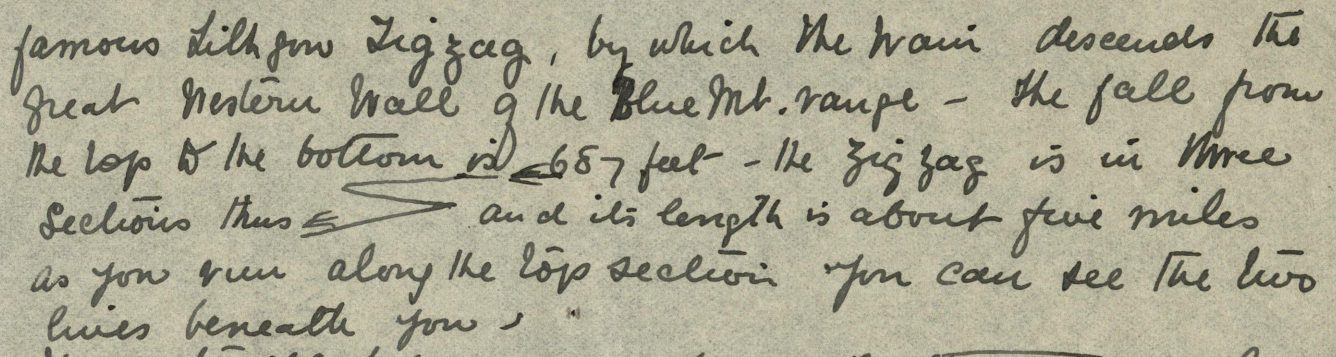 famous Lithgow Zigzag, by which the train descends the
great Western Wall of the Blue Mt. range - the fall from
the top to the bottom is 687 feet - the zig zag is in three
sections thus and its length is about five miles
as you run along the top section you can see the two
lines beneath you